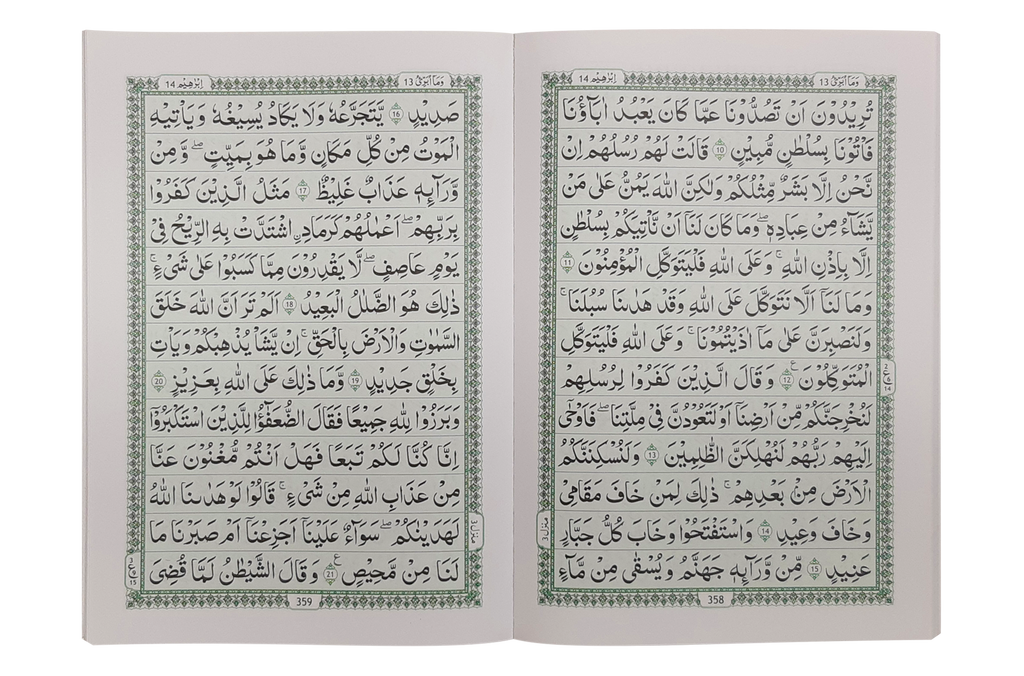 اِبْرٰهِيْم 14
وَمَآ اُبَرِّئُ 13
تُرِيْدُوْنَ اَنْ تَصُدُّوْنَا عَمَّا كَانَ يَعْبُدُ اٰبَآؤُنَا
فَاْتُوْنَا بِسُلْطٰنٍ مُّبِيْنٍ 10 قَالَتْ لَهُمْ رُسُلُهُمْ اِنْ
نَّحْنُ اِلَّا بَشَرٌ مِّثْلُكُمْ وَلٰكِنَّ اللّٰهَ يَمُنُّ عَلٰى مَنْ
يَّشَآءُ مِنْ عِبَادِهٖ ؕ وَمَا كَانَ لَنَآ اَنْ نَّاْتِيَكُمْ بِسُلْطٰنٍ
اِلَّا بِاِذْنِ اللّٰهِ ؕ وَعَلَى اللّٰهِ فَلْيَتَوَكَّلِ الْمُؤْمِنُوْنَ 11
وَمَا لَنَآ اَلَّا نَتَوَكَّلَ عَلَى اللّٰهِ وَقَدْ هَدٰىنَا سُبُلَنَا ؕ
وَلَنَصْبِرَنَّ عَلٰى مَآ اٰذَيْتُمُوْنَا ؕ وَعَلَى اللّٰهِ فَلْيَتَوَكَّلِ
الْمُتَوَكِّلُوْنَ 12 وَقَالَ الَّذِيْنَ كَفَرُوْا لِرُسُلِهِمْ
لَنُخْرِجَنَّكُمْ مِّنْ اَرْضِنَآ اَوْ لَتَعُوْدُنَّ فِيْ مِلَّتِنَا ؕ فَاَوْحٰٓى
اِلَيْهِمْ رَبُّهُمْ لَنُهْلِكَنَّ الظّٰلِمِيْنَ 13 وَلَنُسْكِنَنَّكُمُ
الْاَرْضَ مِنْۢ بَعْدِهِمْ ؕ ذٰلِكَ لِمَنْ خَافَ مَقَامِيْ
وَخَافَ وَعِيْدِ 14 وَاسْتَفْتَحُوْا وَخَابَ كُلُّ جَبَّارٍ
عَنِيْدٍ 15 مِّنْ وَّرَآئِهٖ جَهَنَّمُ وَيُسْقٰى مِنْ مَّآءٍ
منزل 3
358
اِبْرٰهِيْم 14
وَمَآ اُبَرِّئُ 13
صَدِيْدٍ 16 يَّتَجَرَّعُهٗ وَلَا يَكَادُ يُسِيْغُهٗ وَيَاْتِيْهِ
الْمَوْتُ مِنْ كُلِّ مَكَانٍ وَّمَا هُوَ بِمَيِّتٍ ؕ وَمِنْ
وَّرَآئِهٖ عَذَابٌ غَلِيْظٌ 17 مَثَلُ الَّذِيْنَ كَفَرُوْا
بِرَبِّهِمْ اَعْمَالُهُمْ كَرَمَادِ ۟اشْتَدَّتْ بِهِ الرِّيْحُ فِيْ
يَوْمٍ عَاصِفٍ ؕ لَا يَقْدِرُوْنَ مِمَّا كَسَبُوْا عَلٰى شَيْءٍ ؕ
ذٰلِكَ هُوَ الضَّلٰلُ الْبَعِيْدُ 18 اَلَمْ تَرَ اَنَّ اللّٰهَ خَلَقَ
السَّمٰوٰتِ وَالْاَرْضَ بِالْحَقِّ ؕ اِنْ يَّشَاْ يُذْهِبْكُمْ وَيَاْتِ
بِخَلْقٍ جَدِيْدٍ 19 وَّمَا ذٰلِكَ عَلَى اللّٰهِ بِعَزِيْزٍ 20
وَبَرَزُوْا لِلّٰهِ جَمِيْعًا فَقَالَ الضُّعَفٰٓؤُا لِلَّذِيْنَ اسْتَكْبَرُوْٓا
اِنَّا كُنَّا لَكُمْ تَبَعًا فَهَلْ اَنْتُمْ مُّغْنُوْنَ عَنَّا
مِنْ عَذَابِ اللّٰهِ مِنْ شَيْءٍ ؕ قَالُوْا لَوْ هَدٰىنَا اللّٰهُ
لَهَدَيْنٰكُمْ ؕ سَوَآءٌ عَلَيْنَآ اَجَزِعْنَآ اَمْ صَبَرْنَا مَا
لَنَا مِنْ مَّحِيْصٍ 21 وَقَالَ الشَّيْطٰنُ لَمَّا قُضِيَ
منزل 3
359